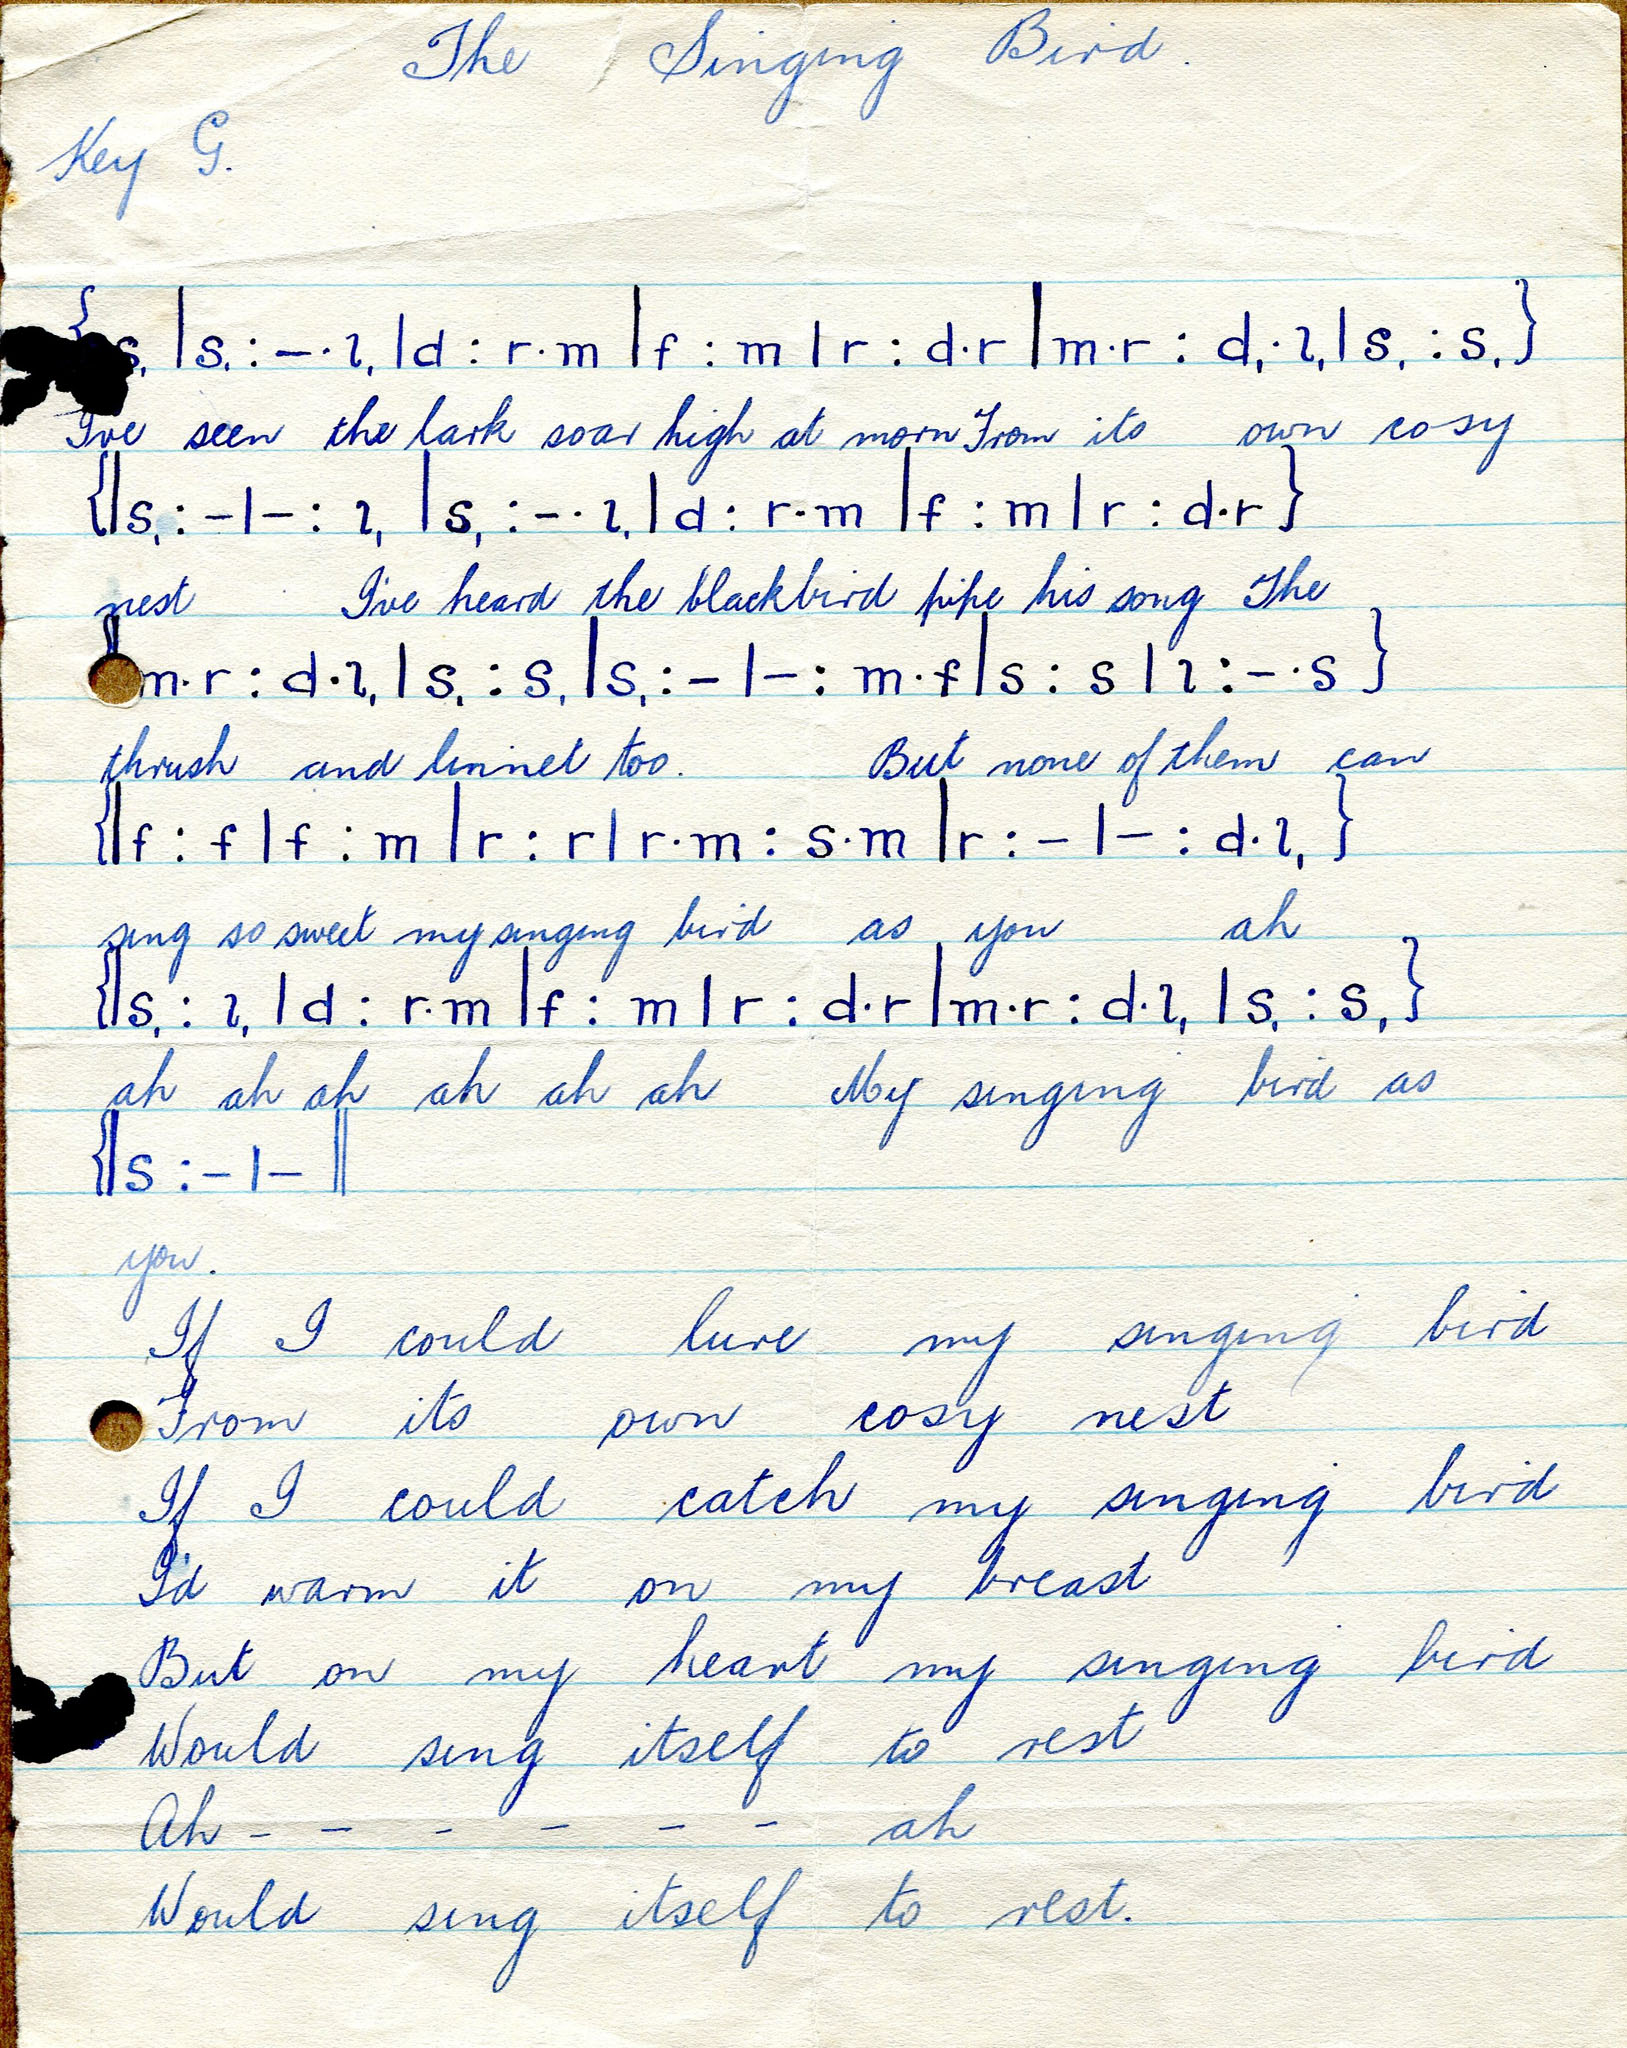 The Singing Bird.
Key G.
{ s, |s, : – · l, |d : r · m |f : m |r : d · r |m · r : d, · l, |s, : s, }
I've seen the lark soar high at morn From its own cosy
{|s, : – |– : l, |s, : – · l, |d : r · m |f : m |r : d · r }
nest I've heard the blackbird pipe his song The
{|m · r : d · l, |s, : s, |s, : – |– : m · f |s : s |l : – · s }
thrush and linnet too. But none of them can
{|f : f |f : m |r : r |r · m : s · m |r : – |– : d · l, }
sing so sweet my singing bird as you ah
{|s, : l, |d : r · m |f : m |r : d · r |m · r : d · l, |s, : s, }
ah ah ah ah ah ah My singing bird as
{|s : – |– ||
you.
If I could lure my singing bird
From its own cosy nest
If I could catch my singing bird
I'd warm it on my breast
But on my heart my singing bird
Would sing itself to rest
Ah – – – – – – ah
Would sing itself to rest.